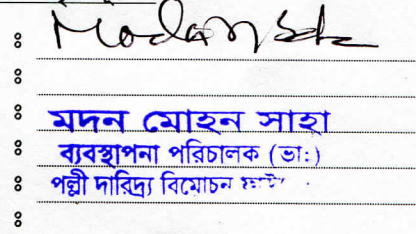 :
:
: মদন মোহন সাহা
: ব্যবস্থাপনা পরিচালক (ভাঃ)
: পল্লী দারিদ্র্য বিমোচন
: